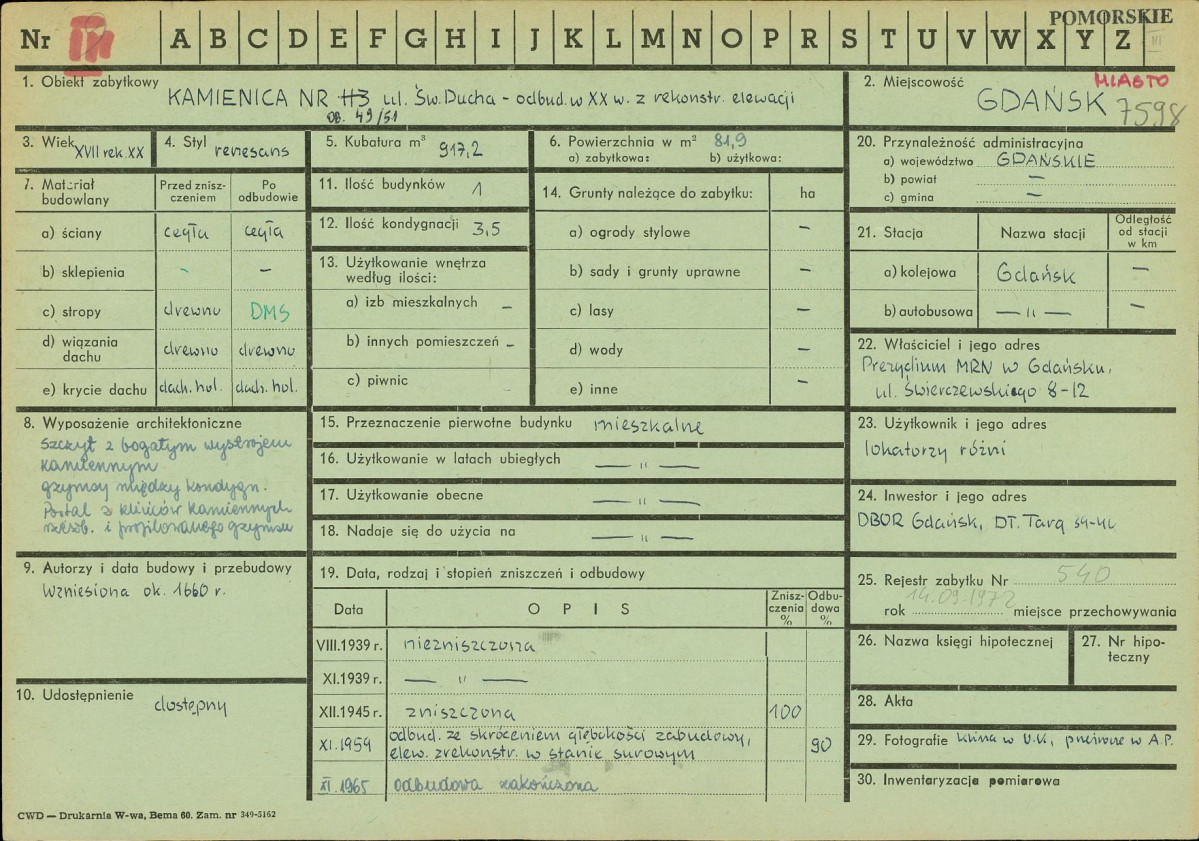 POMORSKIE
Nr III A B C D E F G H I J K L M N O P R S T U V W X Y Z
1. Obiekt zabytkowy
KAMIENICA NR 113 ul. Św. Ducha - odbud. w XX w. z rekonstr. elewacji
OB. 49/51
2. Miejscowość MIASTO
GDAŃSK 7598
3. Wiek XVII rek. XX
4. Styl renesans
5. Kubatura m³ 917,2
6. Powierzchnia w m² 81,9
a) zabytkowa: b) użytkowa:
20. Przynależność administracyjna
a) województwo GDAŃSKIE
b) powiat —
c) gmina —
7. Materiał budowlany
Przed zniszczeniem
Po odbudowie
a) ściany cegła cegła
b) sklepienia - —
c) stropy drewno DMS
d) wiązania dachu drewno drewno
e) krycie dachu dach. hol. dach. hol.
11. Ilość budynków 1
12. Ilość kondygnacji 3,5
13. Użytkowanie wnętrza
według ilości:
a) izb mieszkalnych —
b) innych pomieszczeń —
c) piwnic
14. Grunty należące do zabytku: ha
a) ogrody stylowe —
b) sady i grunty uprawne —
c) lasy —
d) wody —
e) inne —
21. Stacja Nazwa stacji Odległość od stacji w km
a) kolejowa Gdańsk —
b) autobusowa — " — —
22. Właściciel i jego adres
Prezydium MRN w Gdańsku,
ul. Świerczewskiego 8-12
8. Wyposażenie architektoniczne
Szczyt z bogatym wystrojem
kamiennym
gzymsy między kondygn.
Portal z klińców kamiennych
rzeźb. i profilowanego gzymsu
15. Przeznaczenie pierwotne budynku mieszkalne
16. Użytkowanie w latach ubiegłych — " —
17. Użytkowanie obecne — " —
18. Nadaje się do użycia na — " —
23. Użytkownik i jego adres
lokatorzy różni
24. Inwestor i jego adres
DBOR Gdańsk, DT. Targ
9. Autorzy i data budowy i przebudowy
Wzniesiona ok. 1660 r.
10. Udostępnienie
dostępny
19. Data, rodzaj i stopień zniszczeń i odbudowy
Data OPIS Zniszczenia % Odbudowa %
VIII.1939 r. niezniszczona
XI.1939 r. — " —
XII.1945 r. zniszczona 100
XI.1959 odbud. ze skróceniem głębokości zabudowy,
elew. zrekonstr. w stanie surowym 90
XI.1965 odbudowa zakończona
25. Rejestr zabytku Nr 540
rok 14.09.1972 miejsce przechowywania
26. Nazwa księgi hipotecznej
27. Nr hipoteczny
28. Akta
29. Fotografie klisza w U.K., w A.P.
30. Inwentaryzacja pomiarowa
CWD — Drukarnia W-wa, Bema 60. Zam. nr 349-5162